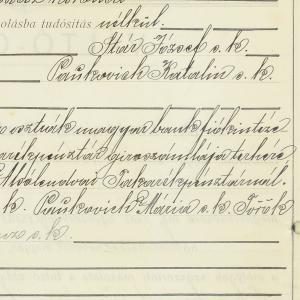 olásba tudósítás nélkül.
Stár József s. k.
Paukovich Katalin s. k.
osztrák magyar bank fiókintéze
arékpénztár giroszámlája terhére
Alsolendvai Takarékpénztárnál.
k. Paukovich Mária s. k. Török
s. k.